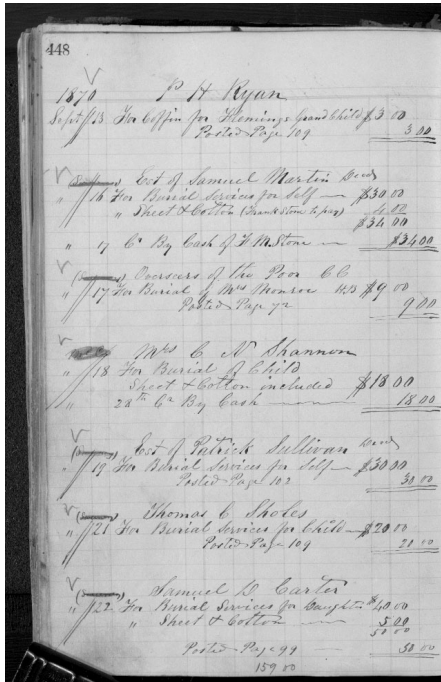 448
1870 P H Ryan
Sept 13 For Coffin for Flemings Grand Child $3 00
Posted Page 109 3 00
Est of Samuel Martin Decd
" 16 For Burial Services for Self — $30 00
" Sheet & Cotton (Frank Stone to pay) 4 00
$34 00
" 17 Cr By Cash of F. M. Stone — $34 00
Overseers of the Poor C C
" 17 For Burial of Mrs Monroe $9 00
Posted Page 72 9 00
Mrs C. N Shannon
" 18 For Burial of Child
Sheet & Cotton included $18 00
" 28th Cr By Cash — 18 00
Est of Patrick Sullivan Decd
" 19 For Burial Services for Self — $30 00
Posted Page 102 30 00
Thomas C Sholes
" 21 For Burial Services for Child — $20 00
Posted Page 109 20 00
Samuel D Carter
" 22 For Burial Services for Daughter $40 00
" Sheet & Cotton — 5 00
50 00
Posted Page 99 — 50 00
159 00